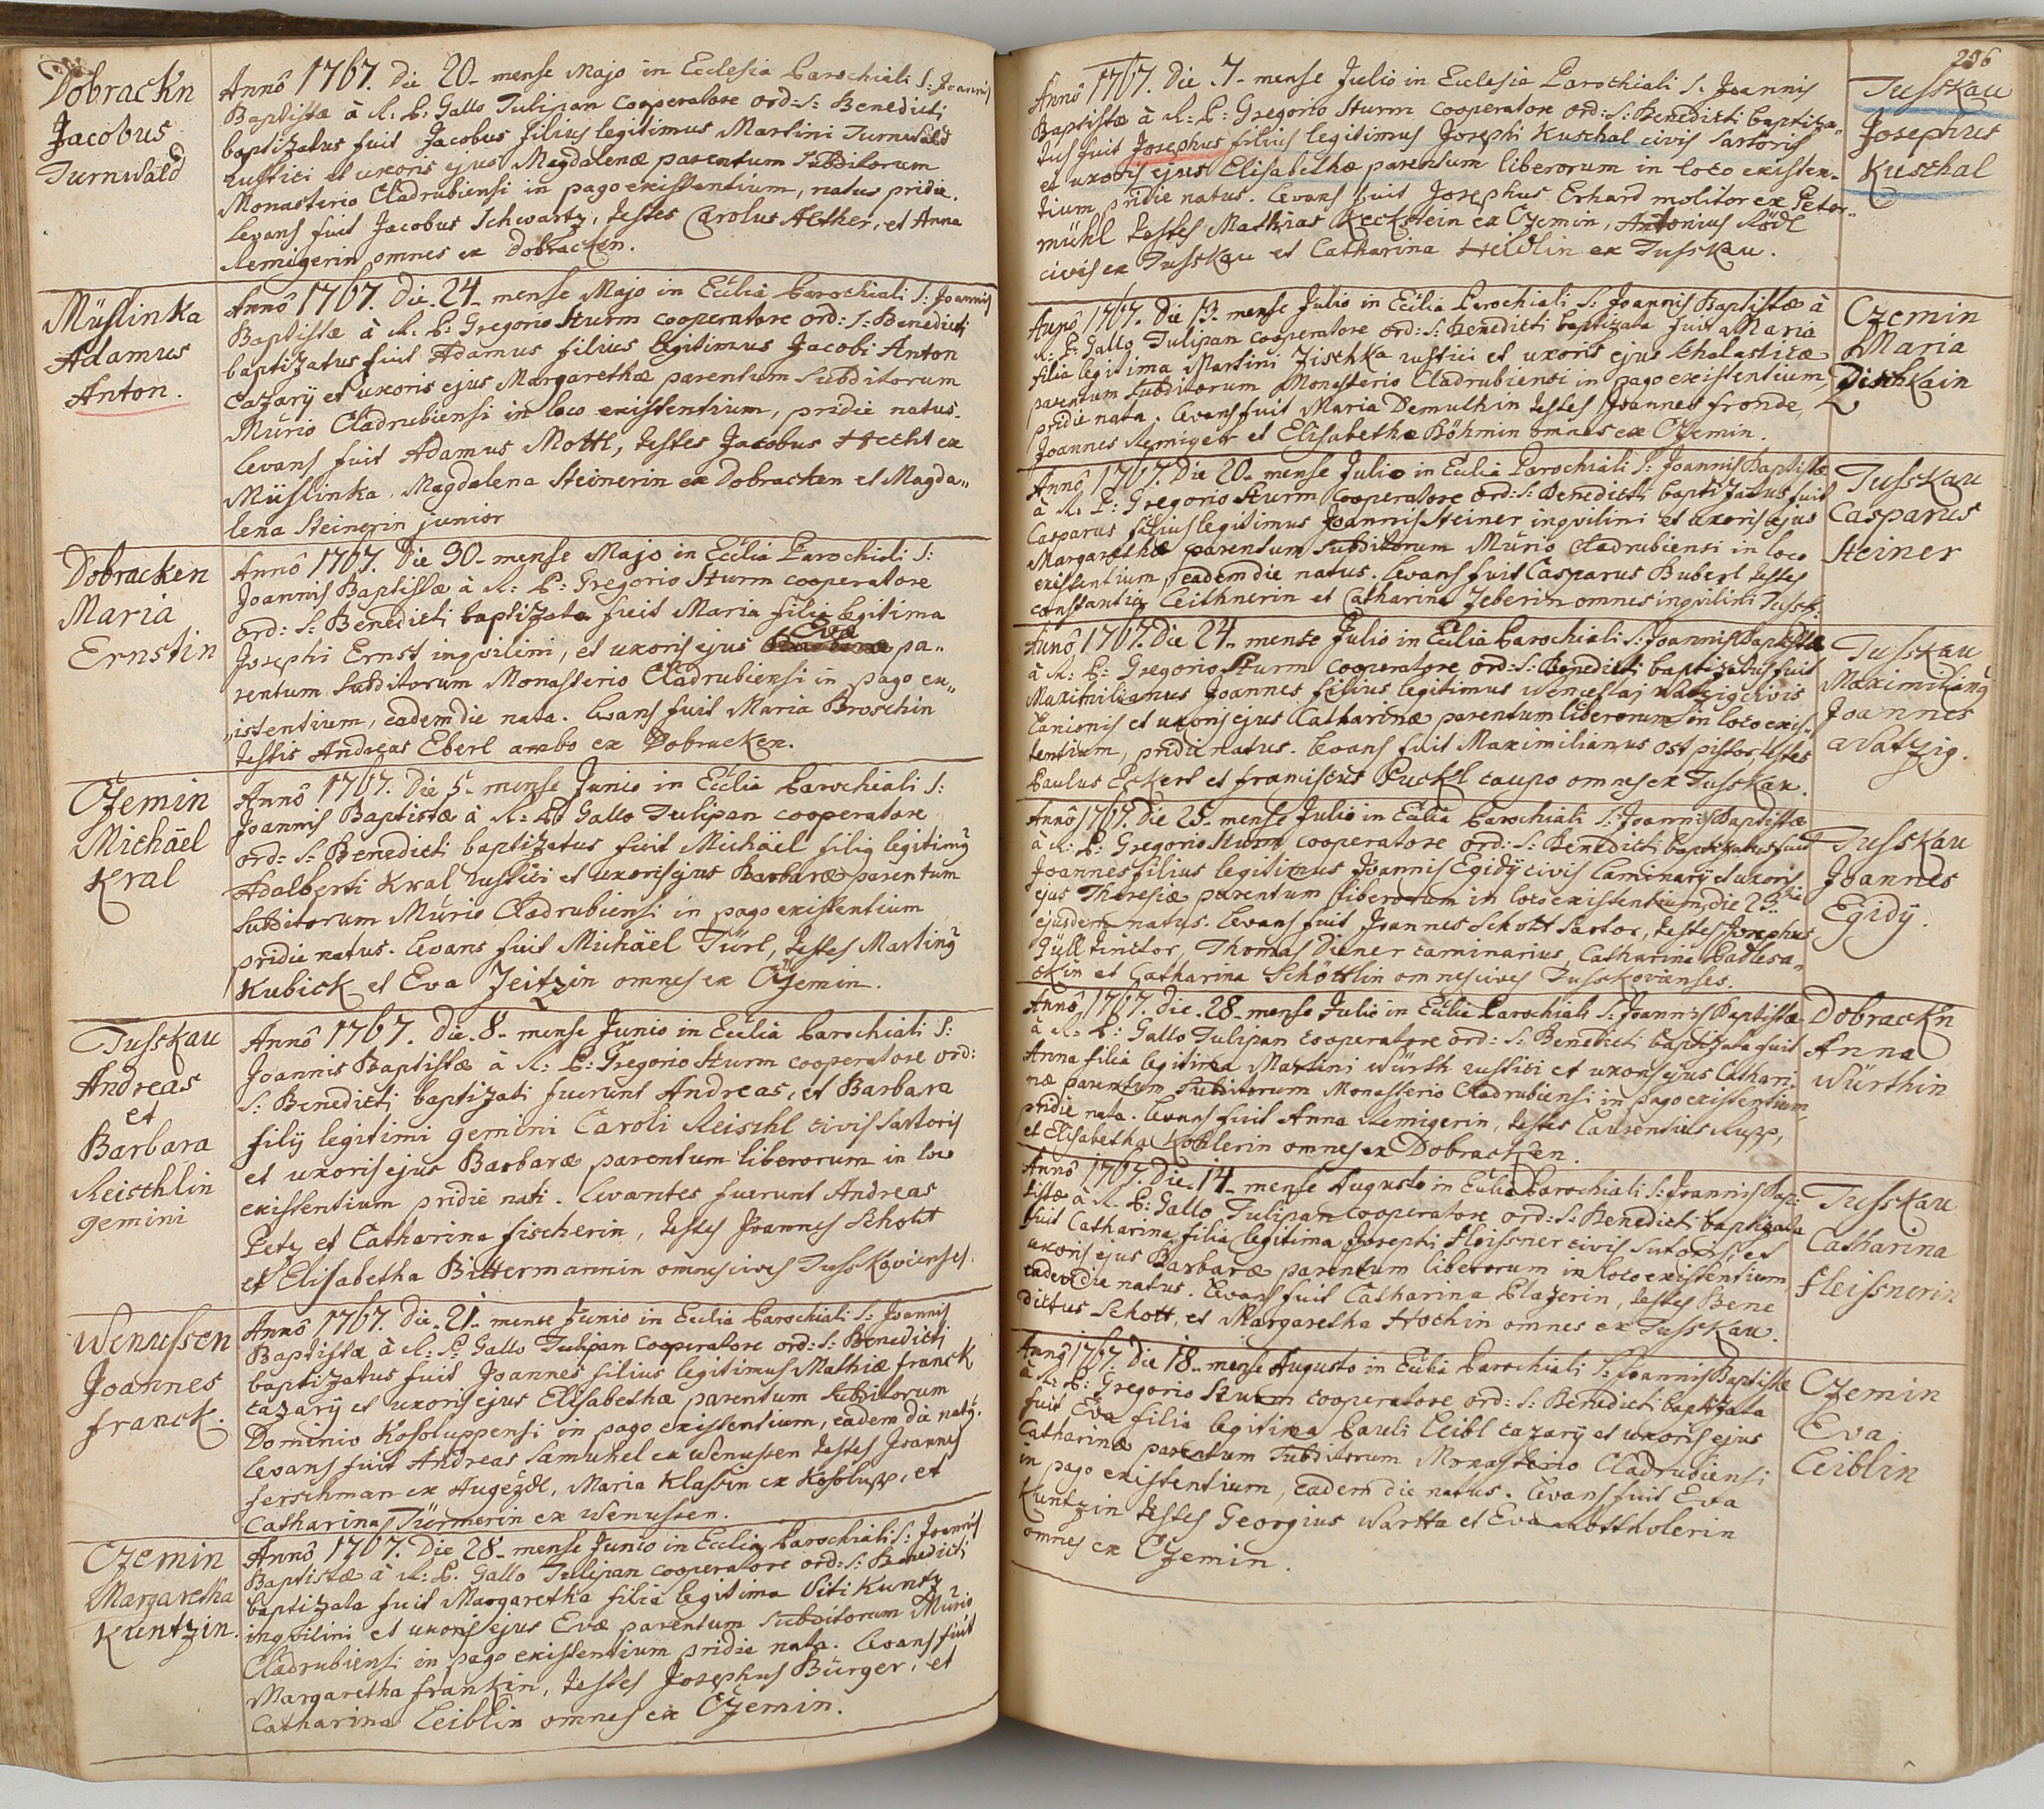 Dobrackn
Jacobus
Turnwald
Anno 1767. Die 20. mense Majo in Ecclesia Parochiali S: Joannis
Baptistæ à R. P. Gallo Tulipan Cooperatore ord: S: Benedicti
baptizatus fuit Jacobus filius legitimus Martini Turnwald
rustici et uxoris ejus Magdalenæ parentum subditorum
Monasterio Cladrubiensi in pago existentium, natus pridie.
Levans fuit Jacobus Schwartz, testes Carolus Aether, et Anna
Remigerin omnes ex Dobracken.
Müslinka
Adamus
Anton.
Anno 1767. Die 24. mense Majo in Ecclia Parochiali S: Joannis
Baptistæ à R. P: Gregorio Sturm cooperatore ord: S: Benedicti
baptizatus fuit Adamus filius legitimus Jacobi Anton
Cazarÿ et uxoris ejus Margarethæ parentum subditorum
Mnrio Cladrubiensi in loco existentium, pridie natus.
Levans fuit Adamus Mottl, testes Jacobus Hecht ex
Müslinka, Magdalena Steinerin ex Dobracken et Magda„
lena Steinerin junior
Dobracken
Maria
Ernstin
Anno 1767. Die 30. mense Majo in Ecclia Parochiali S:
Joannis Baptistæ à R: P: Gregorio Sturm cooperatore
ord: S: Benedicti baptizata fuit Maria filia legitima
Josephi Ernst inqvilini, et uxoris ejus Evæ pa„
rentum subditorum Monasterio Cladrubiensi in pago ex„
„istentium, eadem die nata. Levans fuit Maria Broschin
testis Andreas Eberl ambo ex Dobracken.
Czemin
Michäel
Kral
Anno 1767. Die 5. mense Junio in Ecclia Parochiali S:
Joannis Baptistæ à R: P: Gallo Tulipan cooperatore
ord: S: Benedicti baptizatus fuit Michäel filius legitimus
Adalberti Kral rustici et uxoris ejus Barbaræ parentum
subditorum Mnrio Cladrubiensi in pago existentium
pridie natus. Levans fuit Michäel Türl, testes Martinus
Kubick et Eva Zeitzin omnes ex Czemin.
Tusskau
Andreas
et
Barbara
Reischlin
gemini
Anno 1767. Die 8. mense Junio in Ecclia Parochiali S:
Joannis Baptistæ à R: P: Gregorio Sturm cooperatore ord:
S: Benedicti baptizati fuerunt Andreas, et Barbara
filÿ legitimi gemini Caroli Reischl civis Sartoris
et uxoris ejus Barbaræ parentum liberorum in loco
existentium pridie nati. Levantes fuerunt Andreas
Petz et Catharina fischerin, testes Joannes Schott
et Elisabetha Bittermannin omnes cives Tusskovienses.
Wenussen
Joannes
franck.
Anno 1767. Die 21. mense Junio in Ecclia Parochiali S: Joannis
Baptistæ à R: P: Gallo Tulipan Cooperatore ord: S: Benedicti
baptizatus fuit Joannes filius legitimus Mathiæ franck
cazarÿ et uxoris ejus Elisabethæ parentum subditorum
Dominio Kosoluppensi in pago existentium, eadem die natus.
Levans fuit Andreas Samuhel ex Wenussen testes Joannes
ferschman ex Augézdl, Maria Klasin ex Kosolupp, et
Catharina Türmerin ex Wenussen.
Czemin
Margaretha
Kuntzin.
Anno 1767. Die 28. mense Junio in Ecclia Parochiali S: Joannis
Baptistæ à R: P. Gallo Tulipan cooperatore ord: S: Benedicti
baptizata fuit Margaretha filia legitima Viti Kuntz
inqvilini et uxoris ejus Evæ parentum subditorum Mnrio
Cladrubiensi in pago existentium pridie nata. Levans fuit
Margaretha frankin, testes Josephus Bürger, et
Catharina Leiblin omnes ex Czemin.
206
Anno 1767. Die 7. mense Julio in Ecclesia Parochiali S: Joannis
Baptistæ à R: P: Gregorio Sturm cooperatore ord: S: Benedicti baptiza„
tus fuit Josephus filius legitimus Josephi Kuschal civis Sartoris
et uxoris ejus Elisabethæ parentum liberorum in loco existen„
tium pridie natus. Levans fuit Josephus Erhard molitor ex Peter„
mühl testes Mathias Keckstein ex Czemin, Antonius Rödl
civis ex Tusskau et Catharina Heidlin ex Tusskau.
Tusskau
Josephus
Kuschal
Anno 1767. Die 13. mense Julio in Ecclia Parochiali S: Joannis Baptistæ à
R: P: Gallo Tulipan Cooperatore ord: S: Benedicti baptizata fuit Maria
filia legitima Martini Zischka rustici et uxoris ejus Scholasticæ
parentum subditorum Monasterio Cladrubiensi in pago existentium
pridie nata. Levans fuit Maria Demuthin testes Joannes fronde,
Joannes Remiger et Elisabetha Böhmin omnes ex Czemin.
Czemin
Maria
Dischkain
Anno 1767. Die 20. mense Julio in Ecclia Parochiali S: Joannis Baptistæ
à R. P: Gregorio Sturm Cooperatore ord: S: Benedicti baptizatus fuit
Casparus filius legitimus Joannis Steiner inqvilini et uxoris ejus
Margarethæ parentum subditorum Mnrio Cladrubiensi in loco
existentium, eadem die natus. Levans fuit Casparus Buberl testes
Constantia Leithnerin et Catharina Zeberin omnes inqvilini Tussk.
Tusskau
Casparus
Steiner
Anno 1767. Die 24. mense Julio in Ecclia Parochiali S: Joannis Baptistæ
à R: P: Gregorio Sturm Cooperatore ord: S: Benedicti baptizatus fuit
Maximilianus Joannes filius legitimus Wenceslaj Watzig civis
Lanionis et uxoris ejus Catharinæ parentum liberorum in loco exis„
tentium, pridie natus. Levans fuit Maximilianus ost pistor, testes
Paulus Eckert et franciscus Puckl caupo omnes ex Tusskau.
Tusskau
Maximilianus
Joannes
Watzig.
Anno 1767. Die 25. mense Julio in Ecclia Parochiali S: Joannis Baptistæ
à R: P: Gregorio Sturm cooperatore ord: S: Benedicti baptizatus fuit
Joannes filius legitimus Joannis Egidÿ civis Caminarÿ et uxoris
ejus Theresiæ parentum liberorum in loco existentium, die 23tia
ejusdem natus. Levans fuit Joannes Schott Sartor, testes Josephus
Güll tinctor, Thomas Diener caminarius, Catharina Padlesa„
ckin et Catharina Schöttlin omnes cives Tusskovienses.
Tusskau
Joannes
Egidÿ.
Anno 1767. Die 28. mense Julio in Ecclia Parochiali S: Joannis Baptistæ
à R: P: Gallo Tulipan cooperatore ord: S: Benedicti baptizata fuit
Anna filia legitima Martini Würth rustici et uxoris ejus Cathari„
næ parentum subditorum Monasterio Cladrubiensi in pago existentium,
pridie nata. Levans fuit Anna Remigerin, testes Laurentius Rupp,
et Elisabetha Kohlerin omnes ex Dobracken.
Dobrackn
Anna
Würthin
Anno 1767. Die 14. mense Augusto in Ecclia Parochiali S: Joannis Bap:
tistæ à R. P: Gallo Tulipan cooperatore ord: S: Benedicti baptizata
fuit Catharina filia legitima Josephi fleissner civis Sutoris, et
uxoris ejus Barbaræ parentum liberorum in loco existentium,
eadem die natus. Levans fuit Catharina Plazerin, testes Bene
dictus Schott, et Margaretha Hochin omnes ex Tusskau.
Tusskau
Catharina
fleissnerin
Anno 1767. Die 18. mense Augusto in Ecclia Parochiali S: Joannis Baptistæ
à R: P: Gregorio Sturm cooperatore ord: S: Benedicti baptizata
fuit Eva filia legitima Pauli Leibl cazarÿ et uxoris ejus
Catharinæ parentum subditorum Monasterio Cladrubiensi
in pago existentium, eadem die natus. Levans fuit Eva
Kuntzin testes Georgius Wartta et Eva Mottholerin
omnes ex Czemin.
Czemin
Eva
Leiblin